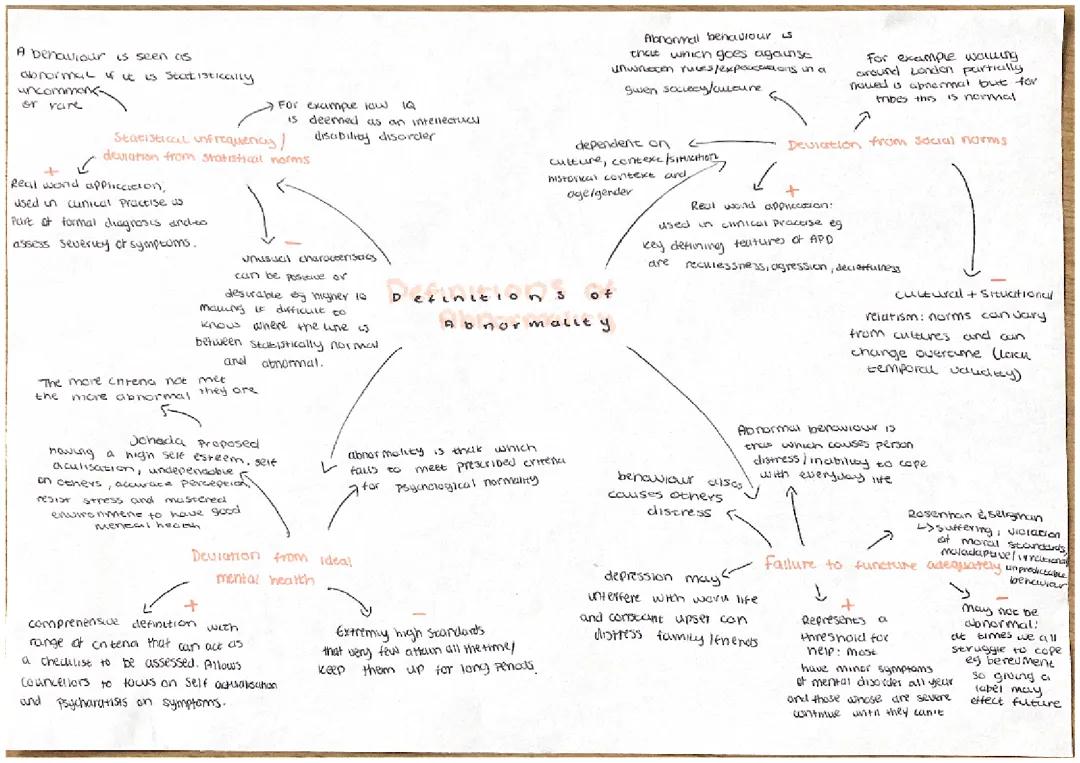 A behaviour is seen as
abnormal if it is statistically
uncommon
or rare
For example low IQ
is deemed as an intellectual
disability disorder
Statistical unfrequency/
deviation from statistical norms
+
Real world application,
used in clinical practise as
part of formal diagnosis and to
assess severity of symptoms.
−
unusual characteristics
can be positive or
desirable eg higher IQ
making it difficult to
know where the line is
between statistically normal
and abnormal.
Abnormal behaviour is
that which goes against
unwritten rules/expectations in a
given society/culture
For example walking
around London partially
naked is abnormal but for
tribes this is normal
Deviation from social norms
dependent on
culture, context/situation
historical context and
age/gender
+
Real world application:
used in clinical practise eg
key defining features of APD
are recklessness, agression, deceitfulness
−
cultural + situational
relatism: norms can vary
from cultures and can
change overtime (lack
temporal validity)
Definitions of
Abnormality
The more criteria not met
the more abnormal they are
Johoda proposed
having a high self esteem, self
acualisation, undependable
on others, accurate perception,
resist stress and mastered
environment to have good
mental health
abnormality is that which
fails to meet prescribed criteria
for psychological normality
Deviation from ideal
mental health
+
comprehensive definition with
range of criteria that can act as
a checklist to be assessed. Allows
councellors to focus on self actualisation
and psychiatrists on symptoms.
−
Extremly high standards
that very few attain all the time/
keep them up for long periods.
Abnormal behaviour is
that which causes person
distress/inability to cope
with everyday life
behaviour also
causes others
distress
Rosenhan & seligman
↳ suffering, violation
of moral standards,
maladaptive/irrational
unpredictable
behaviour
Failure to functure adequately
depression may
interfere with work life
and constant upset can
distress family/friends
+
Represents a
threshold for
help: most
have minor symptoms
of mental disorder all year
and those whose are severe
continue until they can't
−
May not be
abnormal:
at times we all
struggle to cope
eg berevment
so giving a
label may
effect future